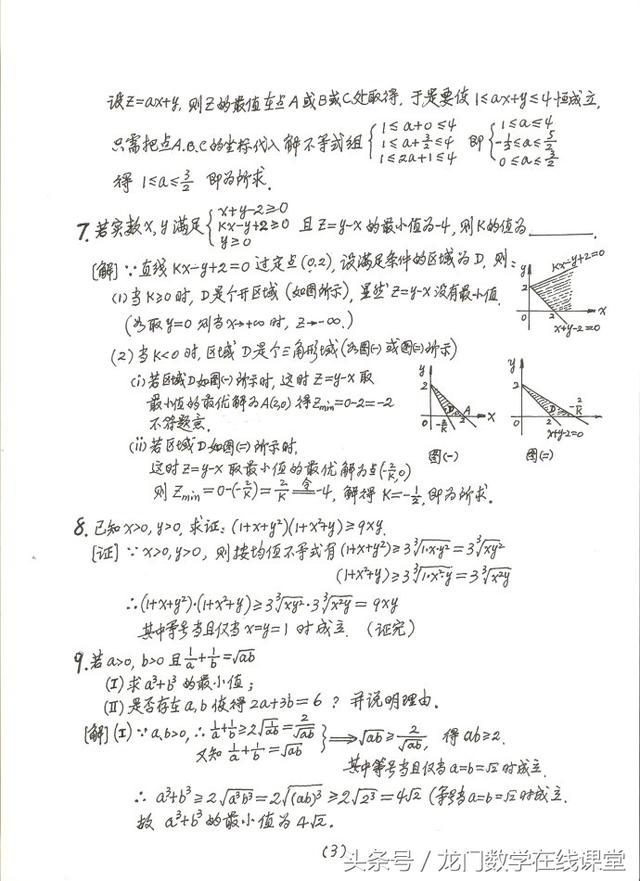 设Z=ax+y, 则Z的最值在点A或B或C处取得, 于是要使 1≤ax+y≤4 恒成立,
只需把点A.B.C的坐标代入解不等式组 { 1≤a+0≤4 1≤a+3/2≤4 1≤2a+1≤4 即 { 1≤a≤4 -1/2≤a≤5/2 0≤a≤3/2
得 1≤a≤3/2 即为所求.
7. 若实数x,y满足 { x+y-2≥0 kx-y+2≥0 y≥0 且Z=y-x的最小值为-4, 则K的值为________.
[解] ∵直线 kx-y+2=0 过定点(0,2), 设满足条件的区域为D, 则:
(1)当K≥0时, D是个开区域(如图所示), 显然Z=y-x没有最小值.
(为取y=0 则当x→+∞时, Z→-∞.)
y
kx-y+2=0
2
0
2
x
x+y-2=0
(2)当K<0时, 区域D是个三角形域(为图(一)或图(二)所示)
(i)若区域D如图(一)所示时, 这时Z=y-x取
最小值的最优解为A(2,0)得Zmin=0-2=-2
不符题意.
(ii)若区域D如图(二)所示时,
这时Z=y-x取最小值的最优解为点(-2/k,0)
则Zmin=0-(-2/k)=2/k 令= -4, 解得 K=-1/2, 即为所求.
y
2
D
A
0
-2/k
x
图(一)
y
2
D
-2/k
0
2
x
x+y-2=0
图(二)
8. 已知x>0, y>0, 求证: (1+x+y²)(1+x²+y)≥9xy.
[证] ∵x>0, y>0, 则按均值不等式有(1+x+y²)≥3∛(1·x·y²)=3∛(xy²)
(1+x²+y)≥3∛(1·x²·y)=3∛(x²y)
∴(1+x+y²)·(1+x²+y)≥3∛(xy²)·3∛(x²y)=9xy
其中等号当且仅当x=y=1时成立. (证完)
9. 若a>0, b>0且1/a+1/b=√ab
(I)求a³+b³的最小值;
(II)是否存在a,b使得2a+3b=6? 并说明理由.
[解](I)∵a,b>0, ∴1/a+1/b≥2√(1/ab)=2/√ab
又知 1/a+1/b=√ab } ⟹ √ab≥2/√ab, 得ab≥2.
其中等号当且仅当a=b=√2时成立.
∴ a³+b³≥2√(a³b³)=2√(ab)³≥2√2³=4√2 (等号当a=b=√2时成立.
故 a³+b³的最小值为4√2.
(3)
头条号 / 龙门数学在线课堂